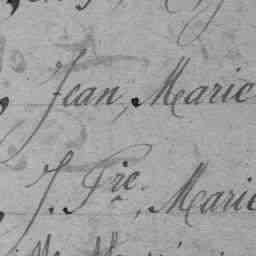 Jean, Marie
J. Pre, Marie